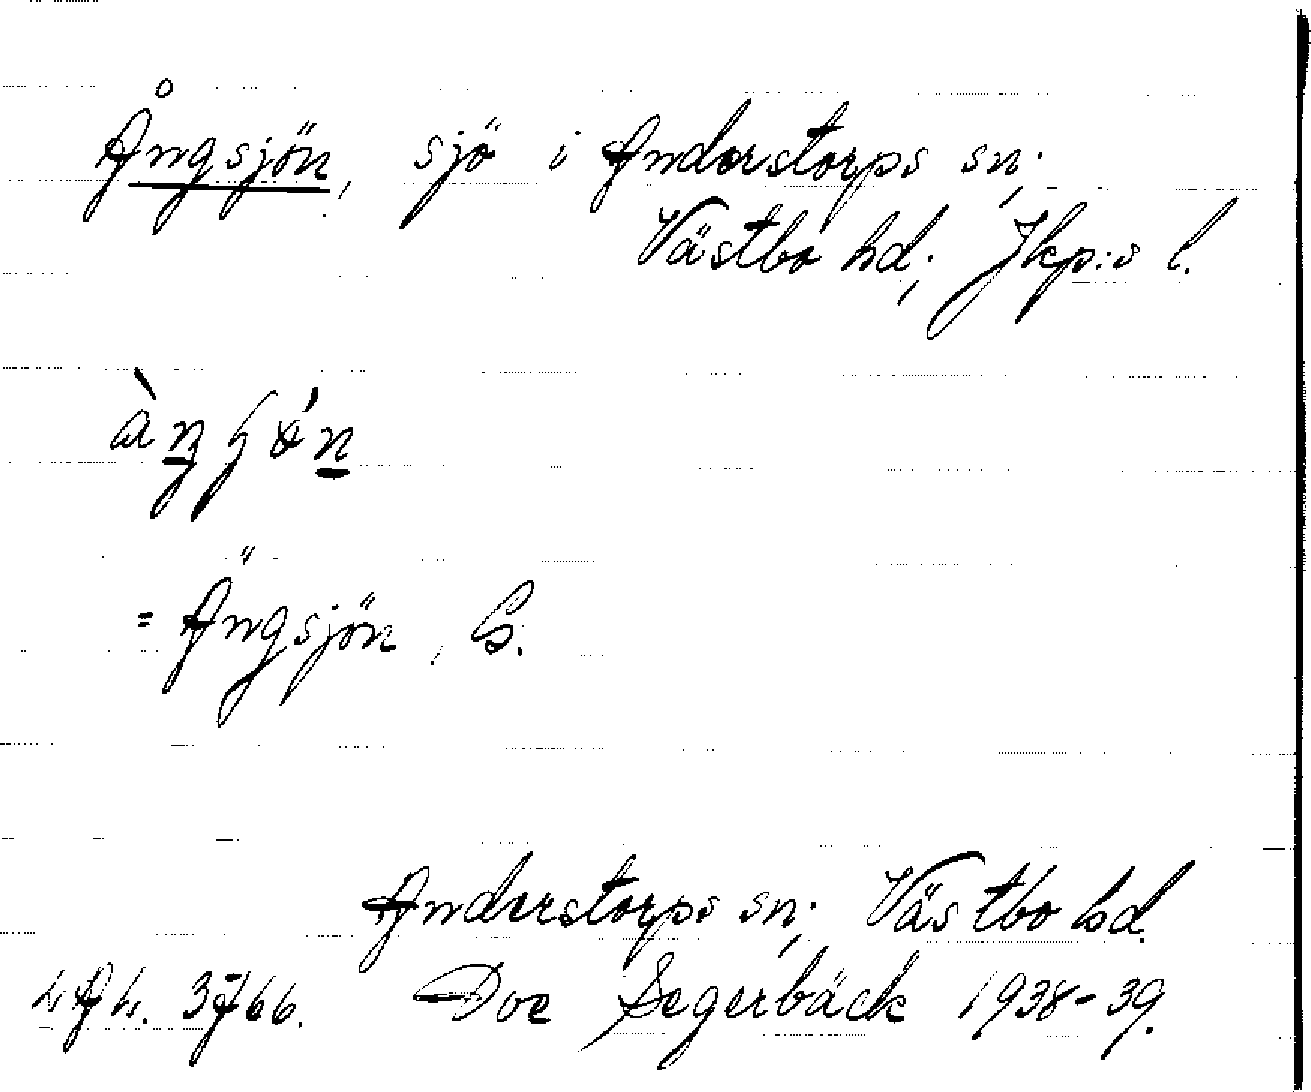 Ångsjön, sjö i Anderstorps sn;
Västbo hd; Jkp:s l.
= Ängsjön, G.
Anderstorps sn; Västbo hd.
3766. Doc Segerbäck 1938-39.